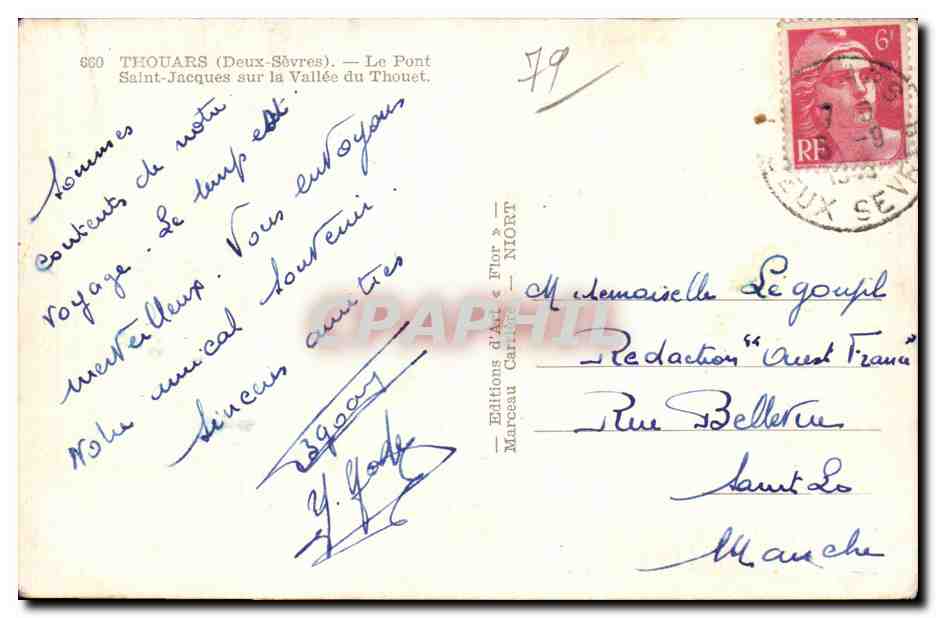 660 THOUARS (Deux-Sèvres). — Le Pont
Saint-Jacques sur la Vallée du Thouet.
79
6f
RF
DEUX SEVRES
Sommes
contents de notre
voyage. Le temps est
merveilleux. Vous envoyons
Notre amical souvenir
Sincères amitiés
— Editions d'Art « Flor » —
Marceau Carrière — NIORT
CPAPHIL
Mademoiselle Legoupil
Rédaction "Ouest France"
Rue Bellevue
Saint Lo
Manche